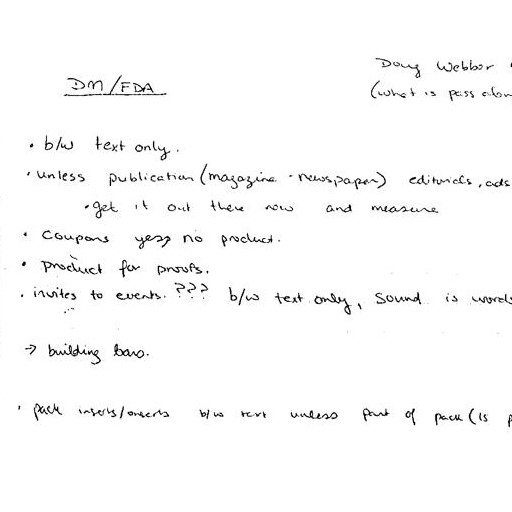 Doug Webber
DM/FDA
(what is pass alon
• b/w text only.
• unless publication (magazine - newspaper) editorials, ads
• get it out there now and measure
• coupons yes, no product.
• product for proofs.
• invites to events. ??? b/w text only, sound is words
→ building bars.
• pack inserts/onserts b/w text unless part of pack (is p